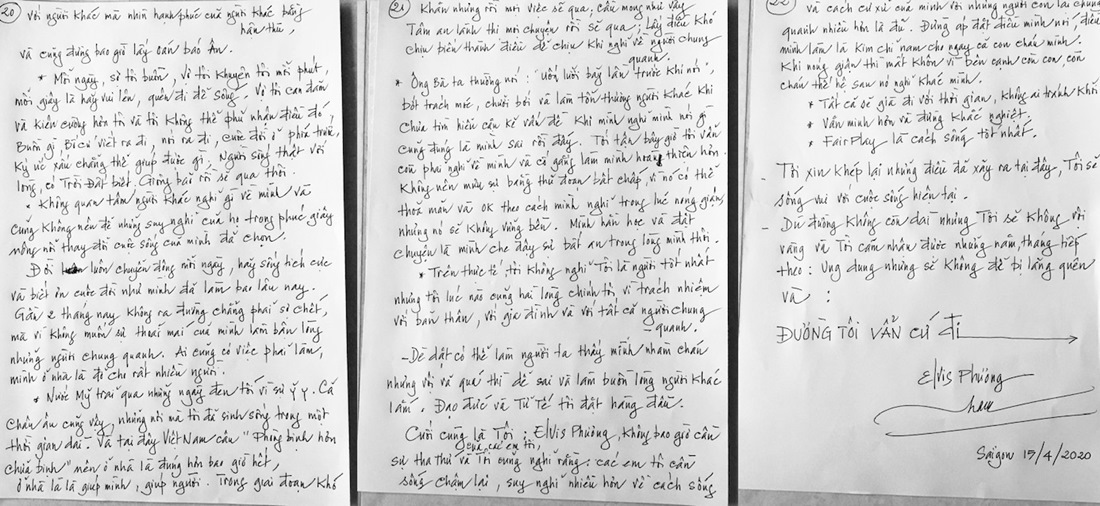 20
với người khác mà nhìn hạnh phúc của người khác bằng
hằn thù,
và cũng đừng bao giờ lấy oán báo Ân.
* Mỗi ngày, sợ tôi buồn, Vợ tôi khuyên tôi mỗi phút,
mỗi giây là hãy vui lên, quên đi để sống. Vợ tôi can đảm
và kiên cường hơn tôi và tôi không thể phủ nhận điều đó,
Buồn gì, Bí cứ viết ra đi, nói ra đi, cuộc đời ở phía trước,
Ký ức xấu chẳng thể giúp được gì. Người sống thật với
lòng, có Trời Đất biết. Giông bão rồi sẽ qua thôi.
* Không quan tâm người khác nghĩ gì về mình và
cũng không nên để những suy nghĩ của họ trong phút giây
nông nổi thay đổi cuộc sống của mình đã chọn.
Đời luôn chuyển động mỗi ngày, hãy sống tích cực
và biết ơn cuộc đời như mình đã làm bao lâu nay.
Gần 2 tháng nay không ra đường chẳng phải sợ chết,
mà vì không muốn sự thoải mái của mình làm bận lòng
những người chung quanh. Ai cũng có việc phải làm,
mình ở nhà là đỡ cho rất nhiều người.
* Nước Mỹ trải qua những ngày đen tối vì sự ỷ y. Cả
Châu Âu cũng vậy, những nơi mà tôi đã sinh sống trong một
thời gian dài. Và tại đây Việt Nam câu "Phòng bịnh hơn
chữa bịnh" nên ở nhà là đúng hơn bao giờ hết,
ở nhà là là giúp mình, giúp người. Trong giai đoạn khó
21
khăn nhưng rồi mọi việc sẽ qua, cầu mong như vậy
Tâm an lành thì mọi chuyện rồi sẽ qua, Lấy điều khó
chịu biến thành điều dễ chịu khi nghĩ về người chung
quanh.
* Ông Bà ta thường nói: "Uốn lưỡi bảy lần trước khi nói",
bớt trách móc, chưởi bới và làm tổn thương người khác khi
chưa tìm hiểu cặn kẽ vấn đề. Khi mình nghĩ mình nói gì
cũng đúng là mình sai rồi đấy. Tôi tận bây giờ tôi vẫn
còn phải nghĩ về mình và cố gắng làm mình hoàn thiện hơn.
Không nên mưu sự bằng thủ đoạn bất chấp, vì nó có thể
thoả mãn và OK theo cách mình nghĩ trong lúc nóng giận,
nhưng nó sẽ không vững bền. Mình hằn học và đặt
chuyện là mình che đậy sự bất an trong lòng mình thôi.
* Trên thực tế, tôi không nghĩ Tôi là người tốt nhất
nhưng tôi lúc nào cũng hài lòng chính tôi vì trách nhiệm
với bản thân, với gia đình và với tất cả người chung
quanh.
- Dè dặt có thể làm người ta thấy mình nhàm chán
nhưng vội vã quá thì dễ sai và làm buồn lòng người khác
lắm. Đạo đức và Tử Tế tôi đặt hàng đầu.
Cuối cùng là Tôi: Elvis Phương, không bao giờ cần
sự tha thứ của các em tôi, và Tôi cũng nghĩ rằng: các em tôi cần
sống chậm lại, suy nghĩ nhiều hơn về cách sống
22
và cách cư xử của mình với những người còn lại chung
quanh nhiều hơn là đủ. Đừng áp đặt điều mình nói, điều
mình làm là Kim chỉ nam cho ngay cả con cháu mình.
Khi nóng giận thì mất khôn vì bên cạnh còn con, còn
cháu thế hệ sau nó nghĩ khác mình.
* Tất cả sẽ già đi với thời gian, không ai tránh khỏi
* Văn minh hơn và đừng khắc nghiệt.
* Fair Play là cách sống tốt nhất.
- Tôi xin khép lại những điều đã xảy ra tại đây, Tôi sẽ
sống vui với cuộc sống hiện tại.
- Dù đường không còn dài nhưng Tôi sẽ không vội
vàng và Tôi cảm nhận được những năm, tháng tiếp
theo: Ung dung nhưng sẽ không để bị lãng quên
và:
ĐƯỜNG TÔI VẪN CỨ ĐI
Elvis Phương
Saigon 15/4/2020